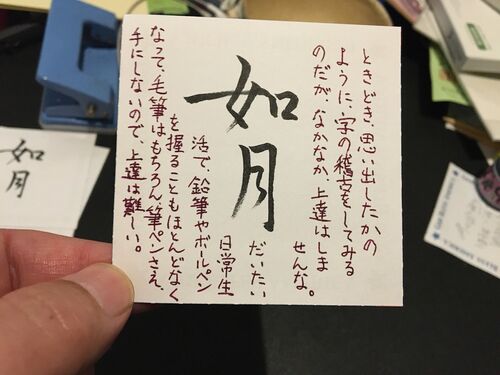 ときどき、思い出したかの
ように、字の稽古をしてみる
のだが、なかなか、上達はしま
せんな。
如月
だいたい
日常生
活で、鉛筆やボールペン
を握ることもほとんどなく
なって、毛筆はもちろん筆ペンさえ、
手にしないので、上達は難しい。
如月